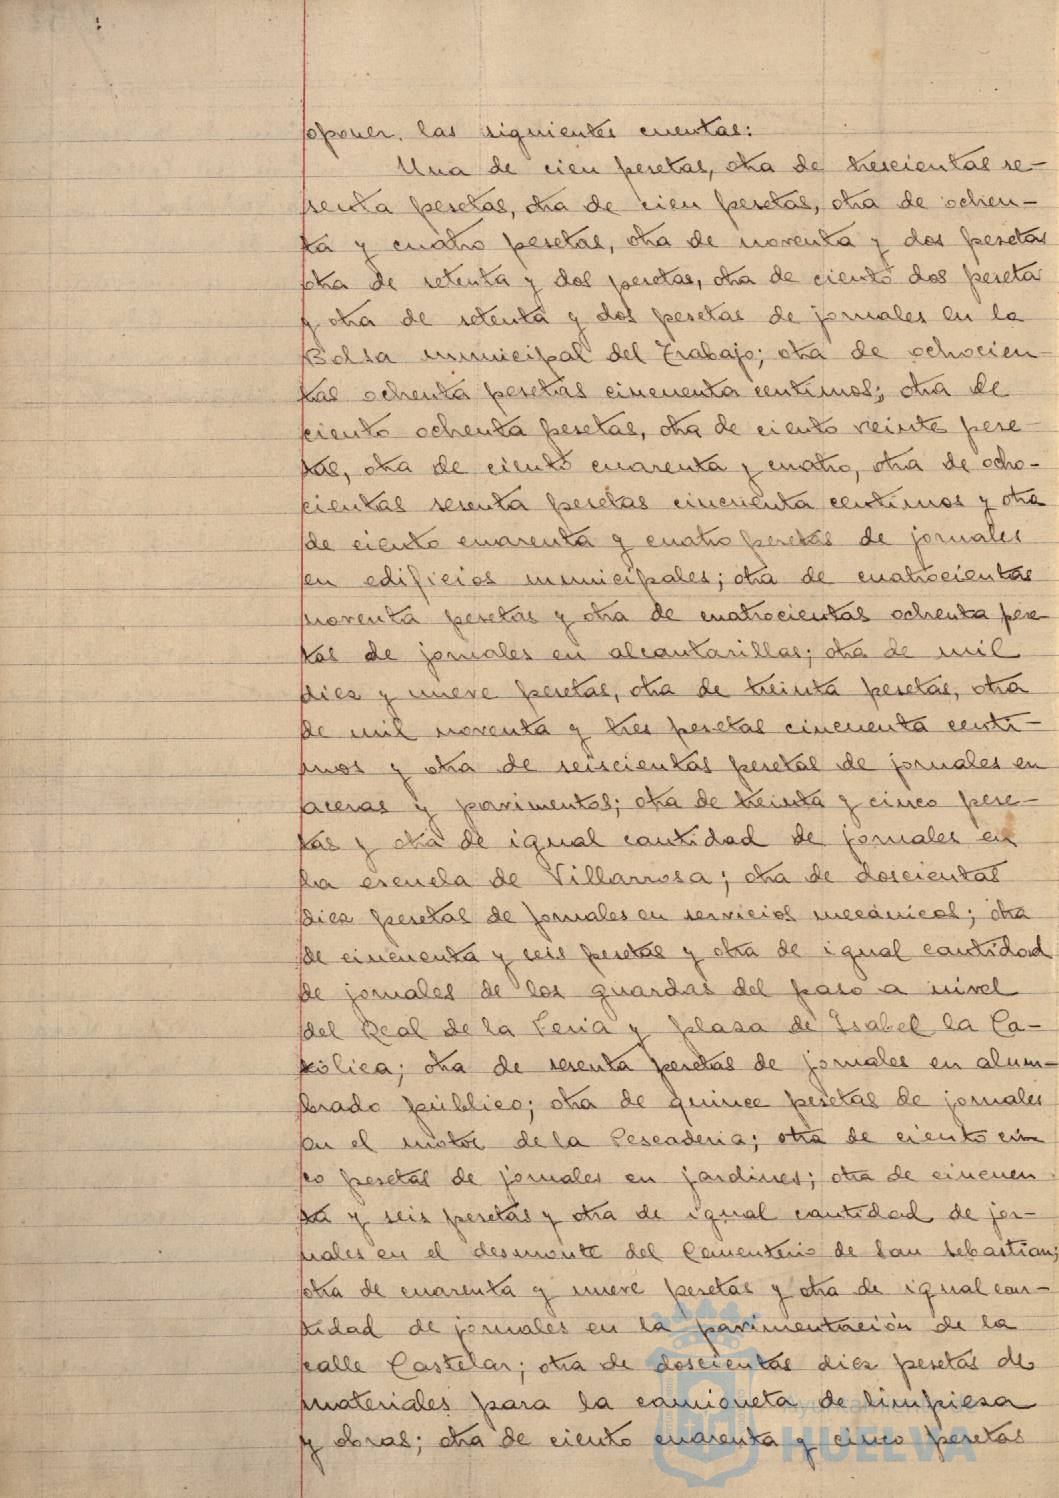 oponer. las siguientes cuentas:
Una de cien pesetas, otra de trescientas se-
senta pesetas, otra de cien pesetas, otra de ochen-
ta y cuatro pesetas, otra de noventa y dos pesetas
otra de setenta y dos pesetas, otra de ciento dos peseta
y otra de setenta y dos pesetas de jornales en la
Bolsa municipal del Trabajo; otra de ochocien-
tas ochenta pesetas cincuenta centimos; otra de
ciento ochenta pesetas, otra de ciento veinte pese-
tas, otra de ciento cuarenta y cuatro, otra de ocho-
cientas sesenta pesetas cincuenta centimos y otra
de ciento cuarenta y cuatro pesetas de jornales
en edificios municipales; otra de cuatrocientas
noventa pesetas y otra de cuatrocientas ochenta pese
tas de jornales en alcantarillas; otra de mil
diez y nueve pesetas, otra de treinta pesetas, otra
de mil noventa y tres pesetas cincuenta centi-
mos y otra de seiscientas pesetas de jornales en
aceras y pavimentos; otra de treinta y cinco pese-
tas y otra de igual cantidad de jornales en
la escuela de Villarrosa; otra de doscientas
diez pesetas de jornales en servicios mecánicos; otra
de cincuenta y seis pesetas y otra de igual cantidad
de jornales de los guardas del paso a nivel
del Real de la Feria y plaza de Isabel la Ca-
tólica; otra de sesenta pesetas de jornales en alum-
brado público; otra de quince pesetas de jornales
en el motor de la Pescaderia; otra de ciento cin
co pesetas de jornales en jardines; otra de cincuen
ta y seis pesetas y otra de igual cantidad de jor-
nales en el desmonte del Cementerio de San Sebastian;
otra de cuarenta y nueve pesetas y otra de igual can-
tidad de jornales en la pavimentación de la
calle Castelar; otra de doscientas diez pesetas de
materiales para la camioneta de limpieza
y obras; otra de ciento cuarenta y cinco pesetas
HUELVA